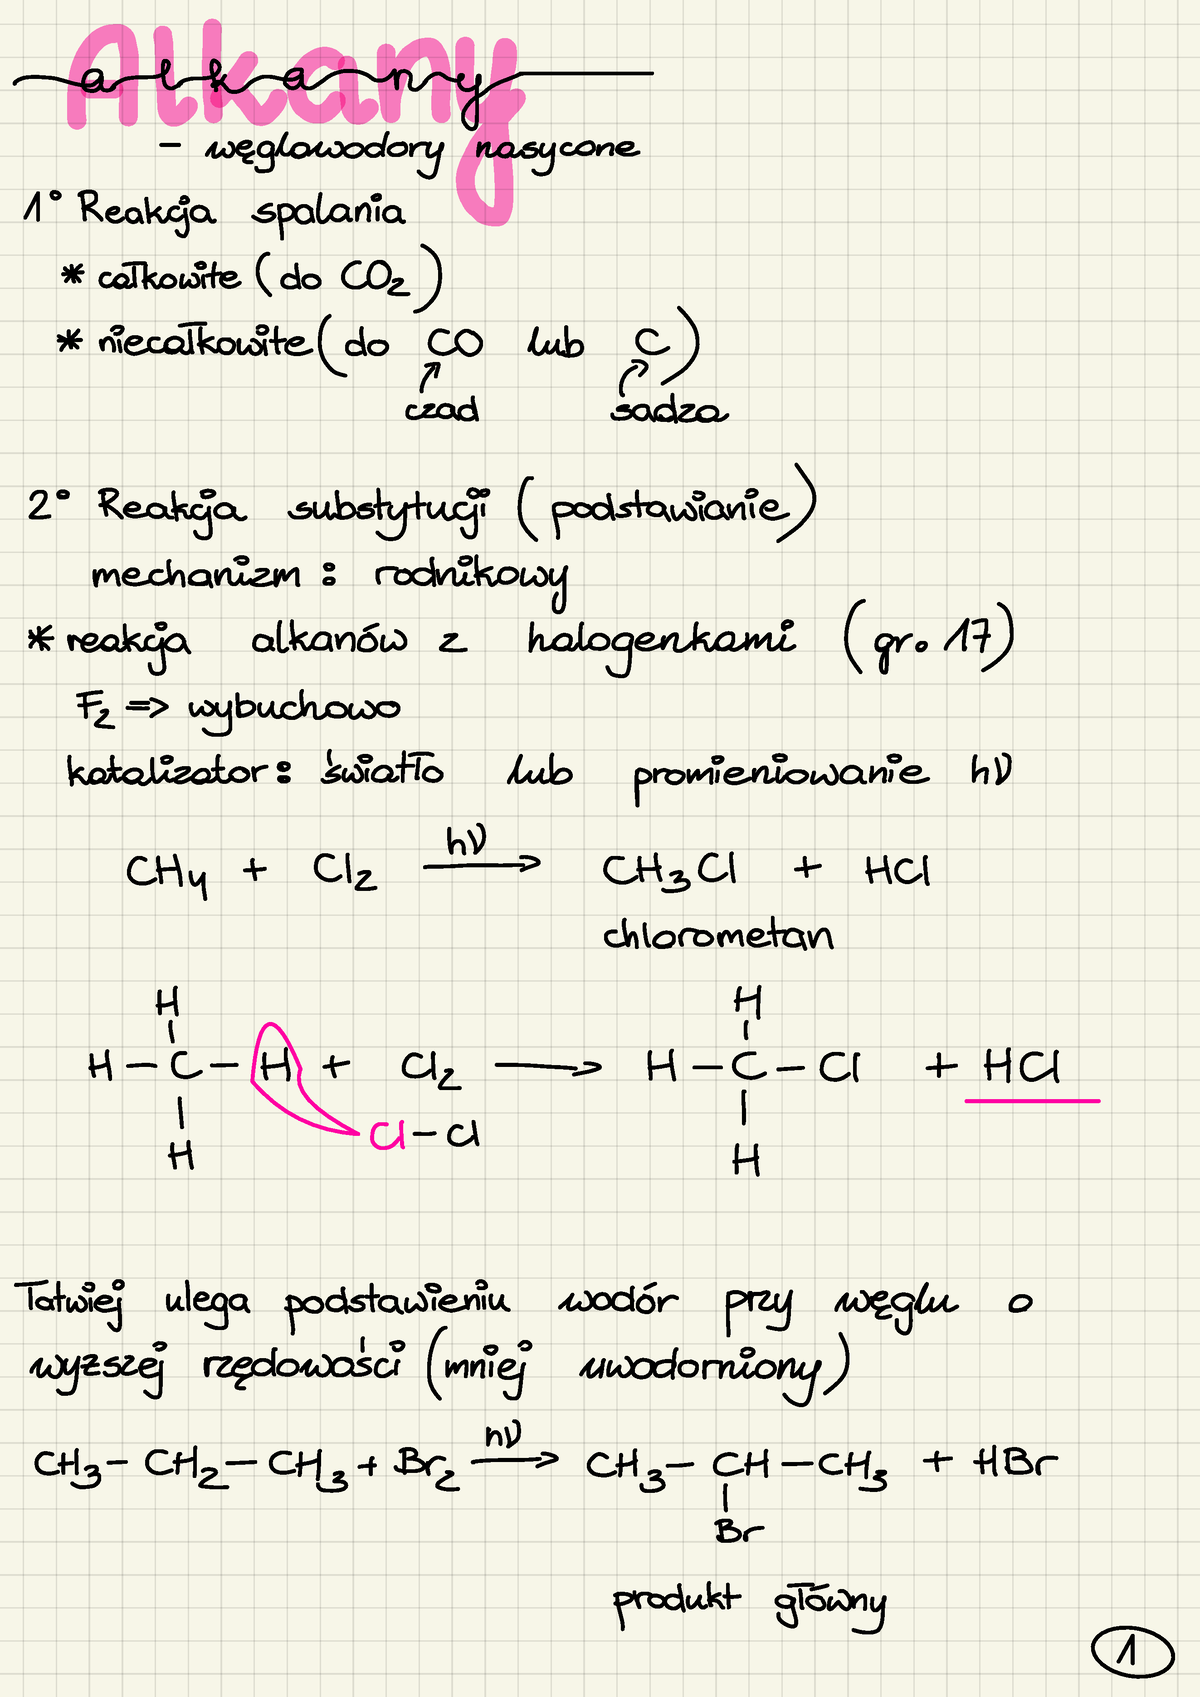 Alkany
alkany
- węglowodory nasycone
1° Reakcja spalania
* całkowite (do CO₂)
* niecałkowite (do CO lub C)
czad sadza
2° Reakcja substytucji (podstawianie)
mechanizm: rodnikowy
* reakcja alkanów z halogenkami (gr. 17)
F₂ => wybuchowo
katalizator: światło lub promieniowanie hν
hν
CH₄ + Cl₂ → CH₃Cl + HCl
chlorometan
H H
H - C - H + Cl₂ → H - C - Cl + HCl
Cl - Cl
H H
Łatwiej ulega podstawieniu wodór przy węglu o
wyższej rzędowości (mniej uwodorniony)
hν
CH₃ - CH₂ - CH₃ + Br₂ → CH₃ - CH - CH₃ + HBr
Br
produkt główny
1